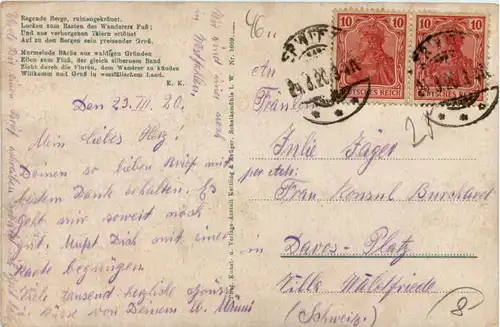 Ragende Berge, ruinengekrönet,
Locken zum Rasten des Wanderers Fuß;
Und aus verborgenen Tälern ertönet
Auf zu den Bergen sein preisender Gruß.
Murmelnde Bäche aus waldigen Gründen
Eilen zum Fluß, der gleich silbernem Band
Zieht durch die Fluren, dem Wanderer zu künden
Willkomm und Gruß in westfälischem Land.
K. K.
Den 23. III. 20.
Mein liebes Herz!
Deinen so lieben Brief mit
bestem Dank erhalten. Es
geht mir soweit noch
gut. Mußt Dich mit einer
Karte begnügen.
Viele tausend herzliche Grüsse
u. Küsse von Deinem
Verlag Kettling & Krüger, Schalksmühle i. W. Nr. 1609
10 10
DEUTSCHES REICH
24.3.20
An
Julie Jäger
per Adr:
Frau Konsul Burchard
in
Davos-Platz
Villa Waldfriede
(Schweiz)
8